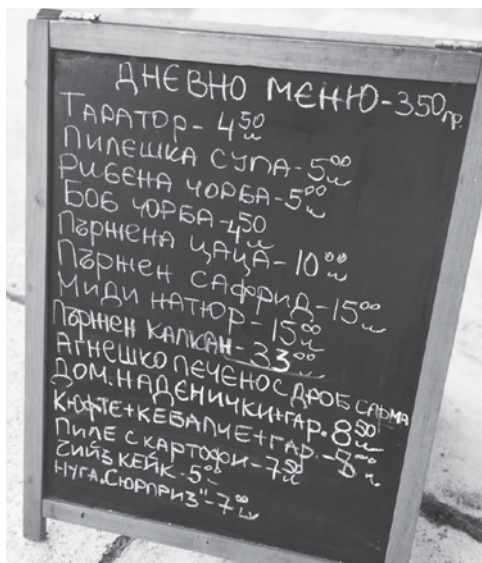 ДНЕВНО МЕНЮ-350гр.
ТАРАТОР- 4 50
ПИЛЕШКА СУПА-5 00
РИБЕНА ЧОРБА-5 00
БОБ ЧОРБА-4 50
ПЪРЖЕНА ЦАЦА-10 00
ПЪРЖЕН САФРИД-15 00
МИДИ НАТЮР-15 00
ПЪРЖЕН КАЛКАН-33 00
АГНЕШКО ПЕЧЕНО С ДРОБ САРМА
ДОМ. НАДЕНИЧКИ+ГАР. 8 50
КЮФТЕ+КЕБАПЧЕ+ГАР.-
ПИЛЕ С КАРТОФИ-7 50
ЧИЙЗ КЕЙК-5 00
НУГА„СЮРПРИЗ"-7 00